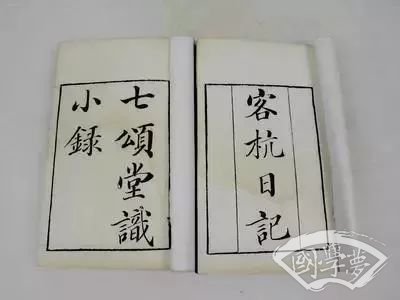 客杭日記
七頌堂識
小録
國學夢